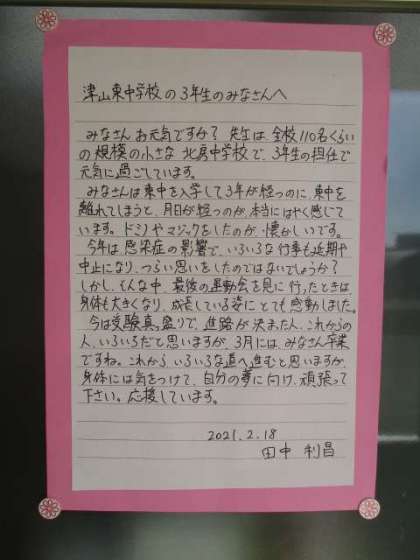 津山東中学校の3年生のみなさんへ
みなさんお元気ですか？先生は、全校110名くらい
の規模の小さな北房中学校で、3年生の担任で
元気に過ごしています。
みなさんは東中を入学して3年が経つのに、東中を
離れてしまうと、月日が経つのが、本当にはやく感じて
います。ドミノやマジックをしたのが、懐かしいです。
今年は感染症の影響で、いろいろな行事も延期や
中止になり、つらい思いをしたのではないでしょうか？
しかし、そんな中、最後の運動会を見に行ったときは
身体も大きくなり、成長している姿にとても感動しました。
今は受験真っ盛りで、進路が決まった人、これからの
人、いろいろだと思いますが、3月には、みなさん卒業
ですね。これからいろいろな道へ進むと思いますが、
身体には気をつけて、自分の夢に向け、頑張って
下さい。応援しています。
2021.2.18
田中 利昌